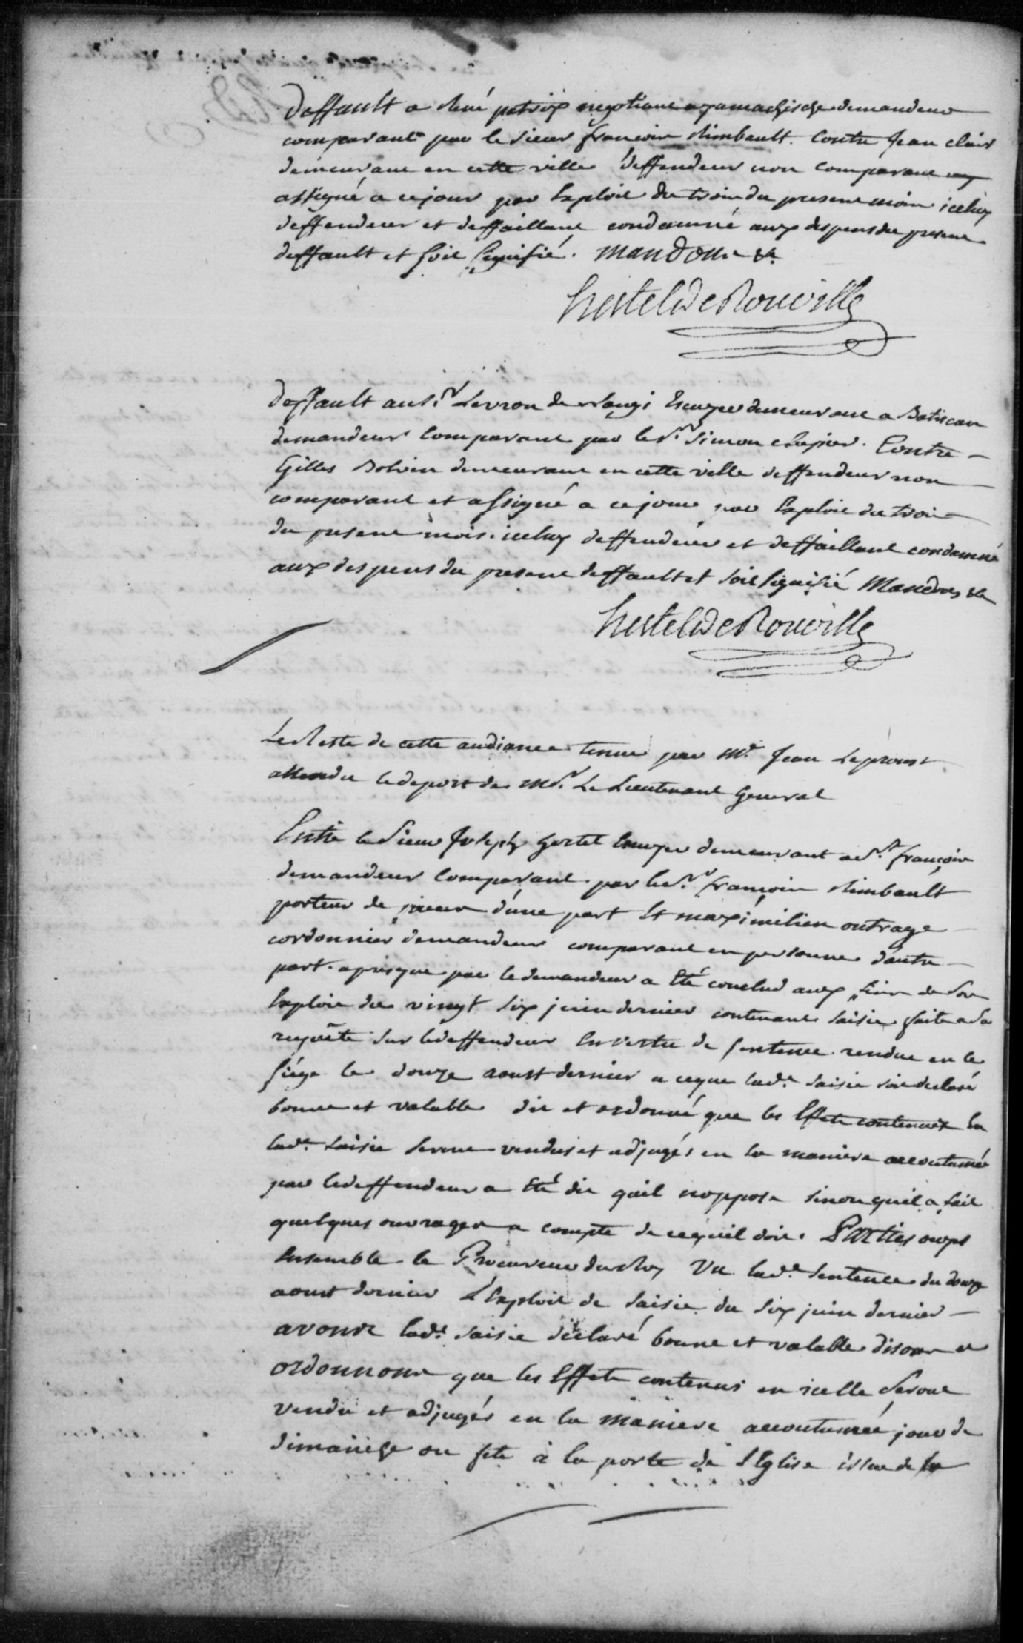 Deffault a René patris negotiant a yamachiche demandeur
comparant par le sieur françois Rimbault. Contre Jean clair
demeurant en cette ville Deffendeur non comparant
assigné a ce jour par Exploit du trois du present mois iceluy
deffendeur et deffaillant condamné aux depens du present
deffault et soit signifié. Mandons &a
hertel De Rouville
Deffault au sr. Levron de Escuyer demeurant a Batiscan
demandeur Comparant par le sr. Simon Contre
Gilles Bolvin demeurant en cette ville deffendeur non
comparant et assigné a ce jour par Exploit du trois
du present mois. iceluy deffendeur et deffaillant condamné
aux depens du present deffault et soit signifié Mandons &a
hertel De Rouville
Le Reste de cette audiance tenue par Mr. Jean Leproust
attendu le deport de Mr. Le Lieutenant General
Entre le Sieur Joseph hertel Ecuyer demeurant a St. françois
demandeur Comparant par le Sr. françois Rimbault
porteur de pieces d'une part Et maximilien outrage
cordonnier demandeur comparant en personne d'autre
part. apresque par le demandeur a Eté conclud aux fins de son
Exploit du vingt six juin dernier contenant saisie faite a Sa
requête sur le deffendeur En vertu de sentence rendue en ce
siége le douze aoust dernier a ceque lade. saisie soit declaré
bonne et valable dit et ordonné que les Effets contenues En
lade. saisie seront vendus et adjugés en la maniere accoutumée
par le deffendeur a Eté dit quil noppose sinon quil a fait
quelques ouvrages a compte de cequil doit. Parties ouyes
Ensemble le Procureur du Roy Vu lade. Sentence du douze
aoust dernier L'Exploit de saisie du six juin dernier
avons lade. saisie déclaré bonne et valable disons et
ordonnons que les Effets contenus en icelle Seront
vendu et adjugés en la maniere accoutumée, jour de
dimanche ou fete à la porte de L'Eglise issue de la